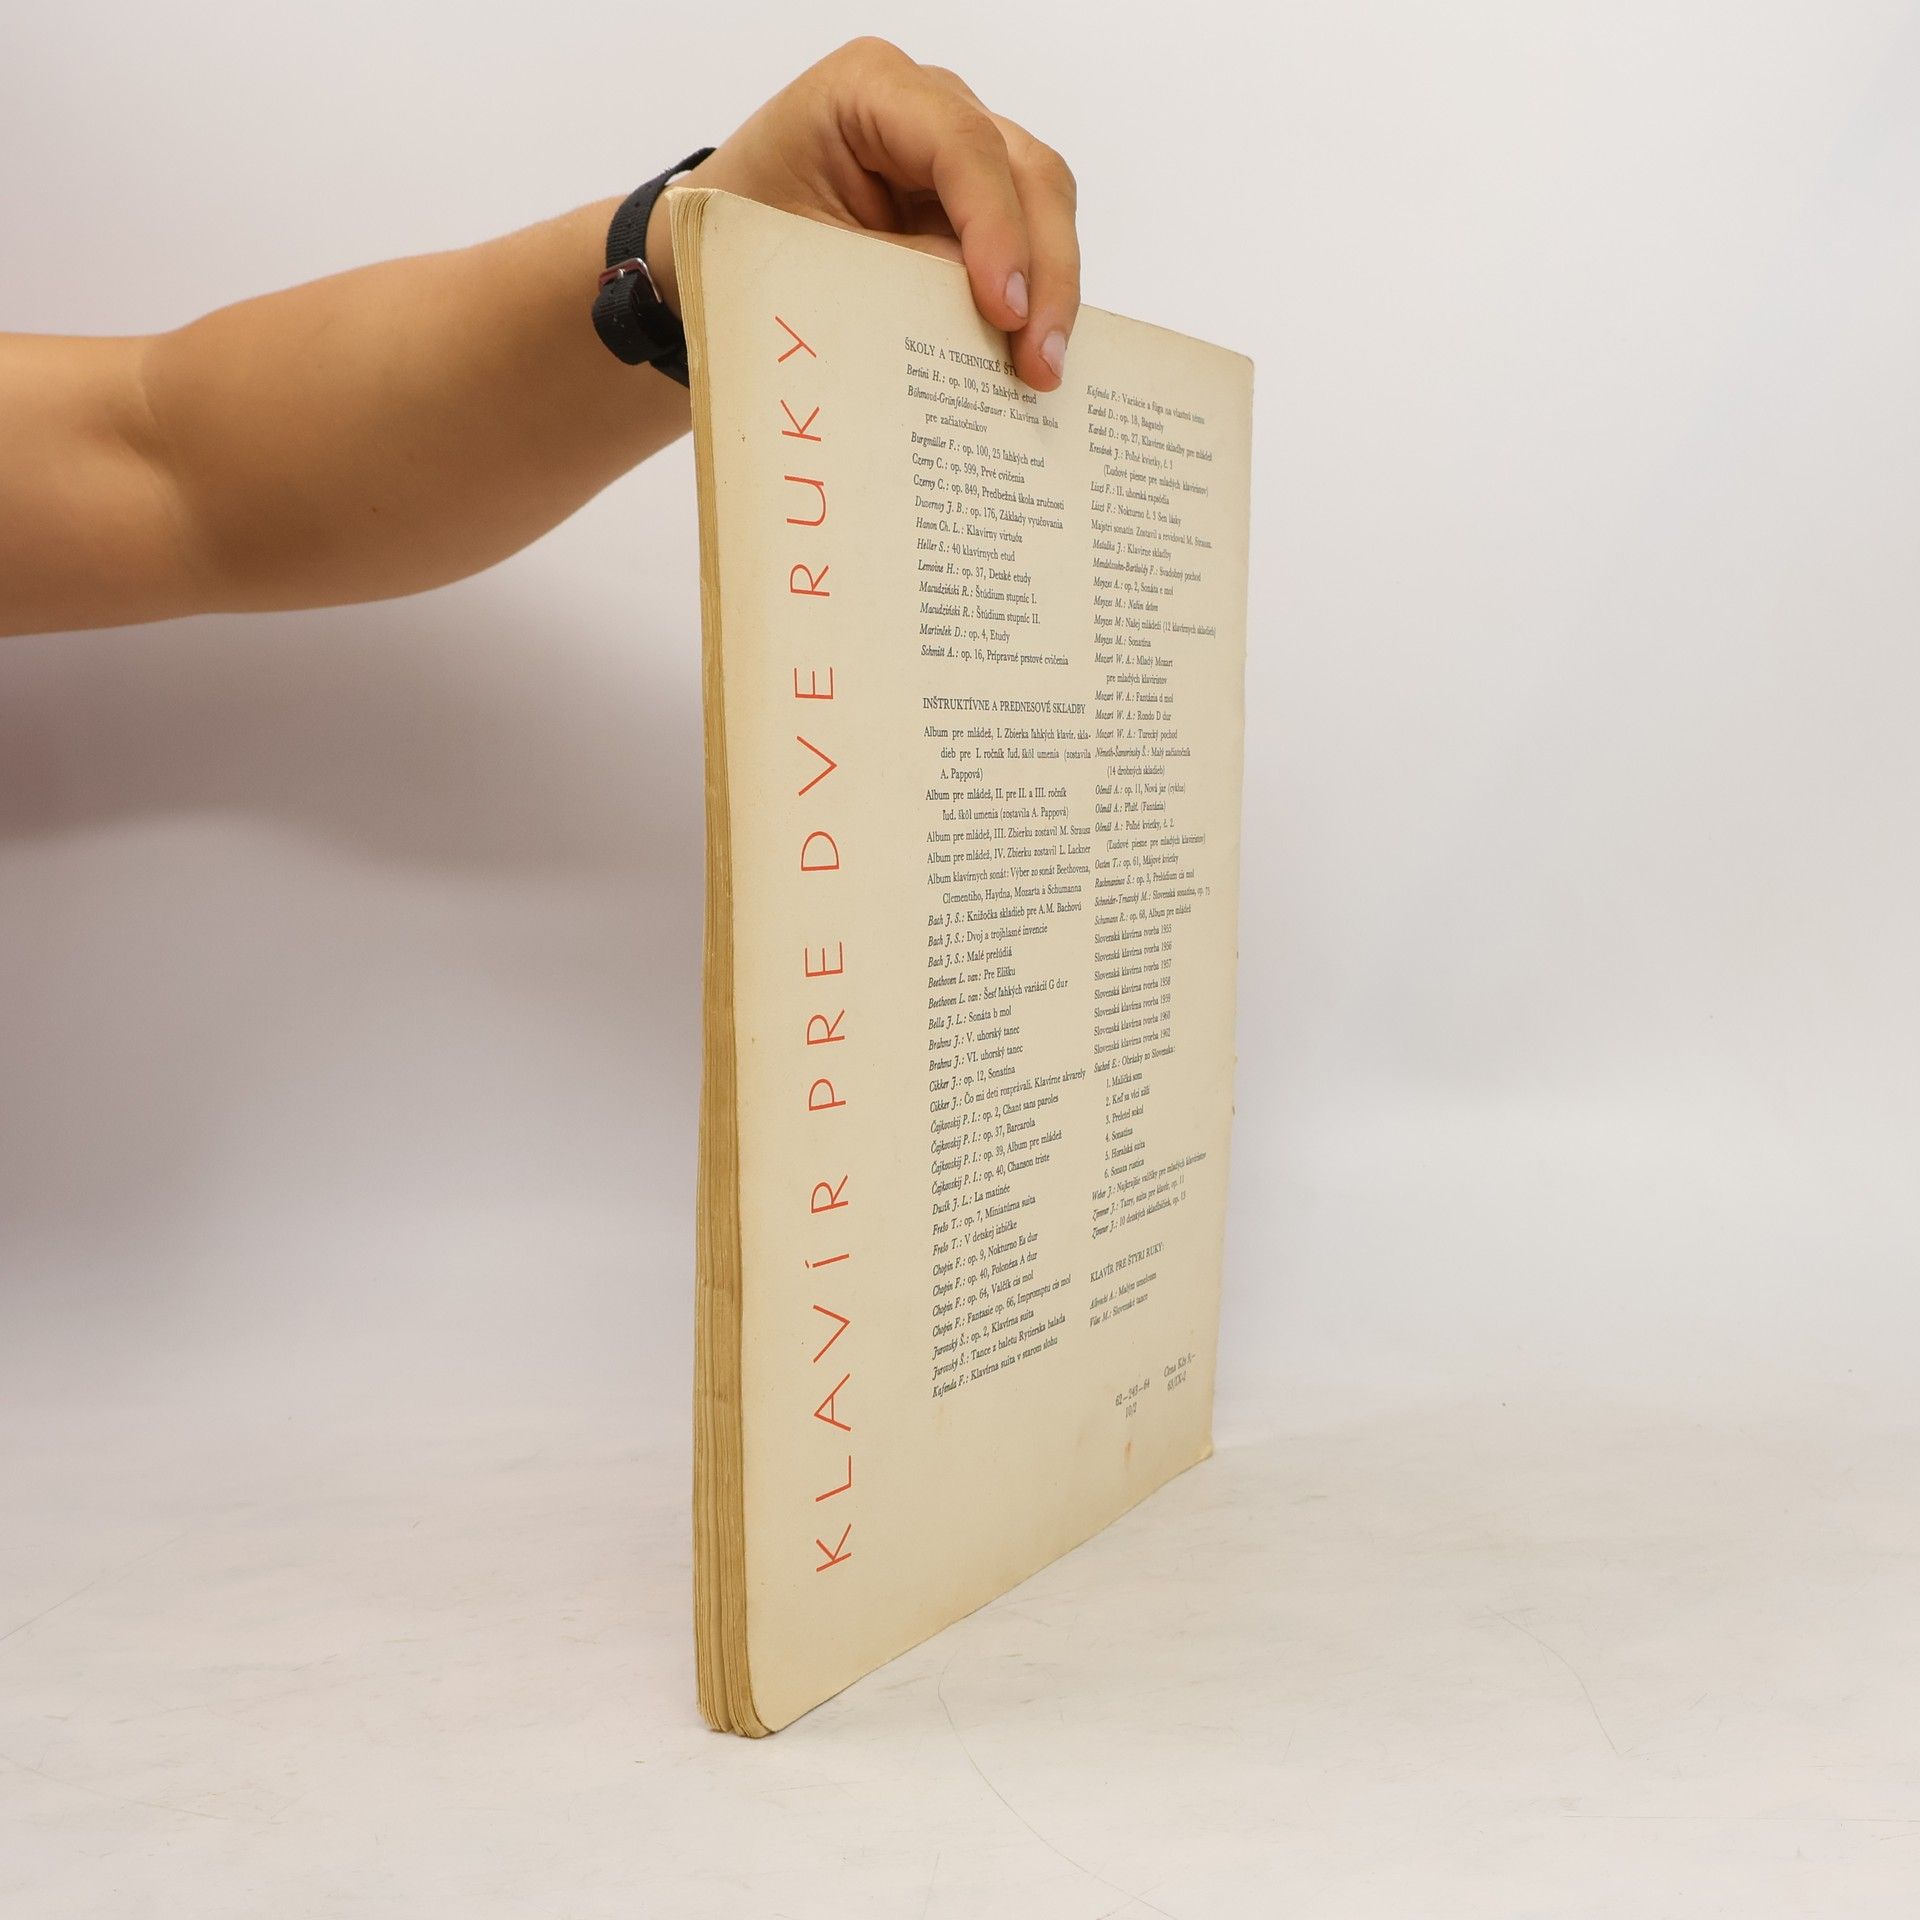 KLAVÍR PRE DVE RUKY
ŠKOLY A TECHNICKÉ
Bertini H.: op. 100, 25 ľahkých etud
Böhmová-Grünfeldová-Sarauer: Klavírna škola
pre začiatočníkov
Burgmüller F.: op. 100, 25 ľahkých etud
Czerny C.: op. 599, Prvé cvičenia
Czerny C.: op. 849, Predbežná škola zručnosti
Duvernoy J. B.: op. 176, Základy vyučovania
Hanon Ch. L.: Klavírny virtuóz
Heller S.: 40 klavírnych etud
Lemoine H.: op. 37, Detské etudy
Macudziński R.: Štúdium stupníc I.
Macudziński R.: Štúdium stupníc II.
Martinček D.: op. 4, Etudy
Schmitt A.: op. 16, Prípravné prstové cvičenia
INŠTRUKTÍVNE A PREDNESOVÉ SKLADBY
Album pre mládež, I. Zbierka ľahkých klavír. skla-
dieb pre I. ročník ľud. škôl umenia (zostavila
A. Pappová)
Album pre mládež, II. pre II. a III. ročník
ľud. škôl umenia (zostavila A. Pappová)
Album pre mládež, III. Zbierku zostavil M. Strausz
Album pre mládež, IV. Zbierku zostavil L. Lackner
Album klavírnych sonát: Výber zo sonát Beethovena,
Clementiho, Haydna, Mozarta a Schumanna
Bach J. S.: Knižočka skladieb pre A.M. Bachovú
Bach J. S.: Dvoj a trojhlasné invencie
Bach J. S.: Malé prelúdiá
Beethoven L. van: Pre Elišku
Beethoven L. van: Šesť ľahkých variácií G dur
Bella J. L.: Sonáta b mol
Brahms J.: V. uhorský tanec
Brahms J.: VI. uhorský tanec
Cikker J.: op. 12, Sonatína
Cikker J.: Čo mi deti rozprávali. Klavírne akvarely
Čajkovskij P. I.: op. 2, Chant sans paroles
Čajkovskij P. I.: op. 37, Barcarola
Čajkovskij P. I.: op. 39, Album pre mládež
Čajkovskij P. I.: op. 40, Chanson triste
Dusík J. L.: La matinée
Frešo T.: op. 7, Miniatúrna suita
Frešo T.: V detskej izbičke
Chopin F.: op. 9, Nokturno Es dur
Chopin F.: op. 40, Polonéza A dur
Chopin F.: op. 64, Valčík cis mol
Chopin F.: Fantasie op. 66, Impromptu cis mol
Jurovský Š.: op. 2, Klavírna suita
Jurovský Š.: Tance z baletu Rytierska balada
Kafenda F.: Klavírna suita v starom slohu
Kafenda F.: Variácie a fúga na vlastnú tému
Kardoš D.: op. 18, Bagately
Kardoš D.: op. 27, Klavírne skladby pre mládež
Kresánek J.: Poľné kvietky, č. 3
(Ľudové piesne pre mladých klaviristov)
Liszt F.: II. uhorská rapsódia
Liszt F.: Nokturno č. 3 Sen lásky
Majstri sonatín. Zostavil a revidoval M. Strausz.
Matuška J.: Klavírne skladby
Mendelssohn-Bartholdy F.: Svadobný pochod
Moyzes A.: op. 2, Sonáta e mol
Moyzes M.: Našim deťom
Moyzes M: Našej mládeži (12 klavírnych skladieb)
Moyzes M.: Sonatína
Mozart W. A.: Mladý Mozart
pre mladých klaviristov
Mozart W. A.: Fantázia d mol
Mozart W. A.: Rondo D dur
Mozart W. A.: Turecký pochod
Németh-Šamorínsky Š.: Malý začiatočník
(14 drobných skladieb)
Očenáš A.: op. 11, Nová jar (cyklus)
Očenáš A.: Plúšť. (Fantázia)
Očenáš A.: Poľné kvietky, č. 2.
(Ľudové piesne pre mladých klaviristov)
Oesten T.: op. 61, Májové kvietky
Rachmaninov S.: op. 3, Prelúdium cis mol
Schneider-Trnavský M.: Slovenská sonatína, op. 75
Schumann R.: op. 68, Album pre mládež
Slovenská klavírna tvorba 1955
Slovenská klavírna tvorba 1956
Slovenská klavírna tvorba 1957
Slovenská klavírna tvorba 1958
Slovenská klavírna tvorba 1959
Slovenská klavírna tvorba 1960
Slovenská klavírna tvorba 1962
Suchoň E.: Obrázky zo Slovenska:
1. Maličká som
2. Keď sa vlci zišli
3. Preletel sokol
4. Sonatína
5. Horalská suita
6. Sonata rustica
Weber J.: Najkrajšie valčíky pre mladých klaviristov
Zimmer J.: Tatry, suita pre klavír, op. 11
Zimmer J.: 10 detských skladbičiek, op. 13
KLAVÍR PRE ŠTYRI RUKY:
Albrecht A.: Malým umelcom
Vilec M.: Slovenské tance
62—243—64
10/2
Cena Kčs 9,—
63/IX-2